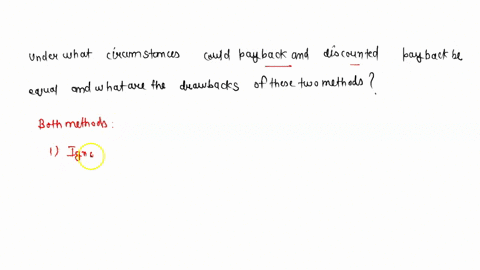 Under what circumstances could payback and discounted payback be
equal and what are the drawbacks of these two methods?
Both methods:
1)